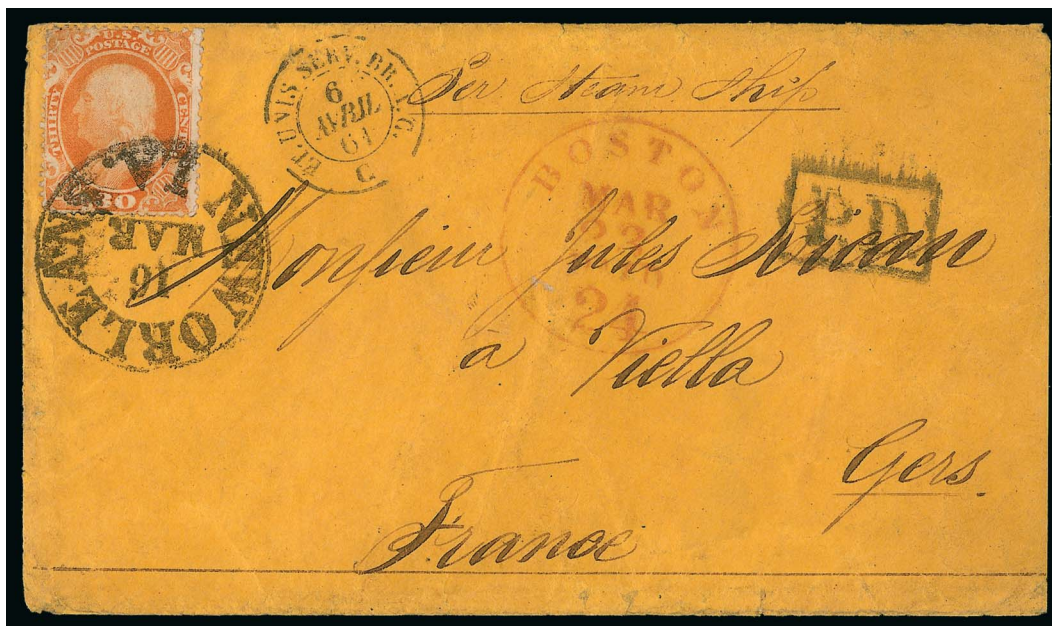 U.S.
POSTAGE
THIRTY CENTS
30
NEW ORLEANS La.
MAR
16
ET. UNIS SERV. BR. A.C.
6
AVRIL
61
Per Steam Ship
BOSTON
MAR
24
P.D.
Monsieur Jules
à Viella
Gers.
France